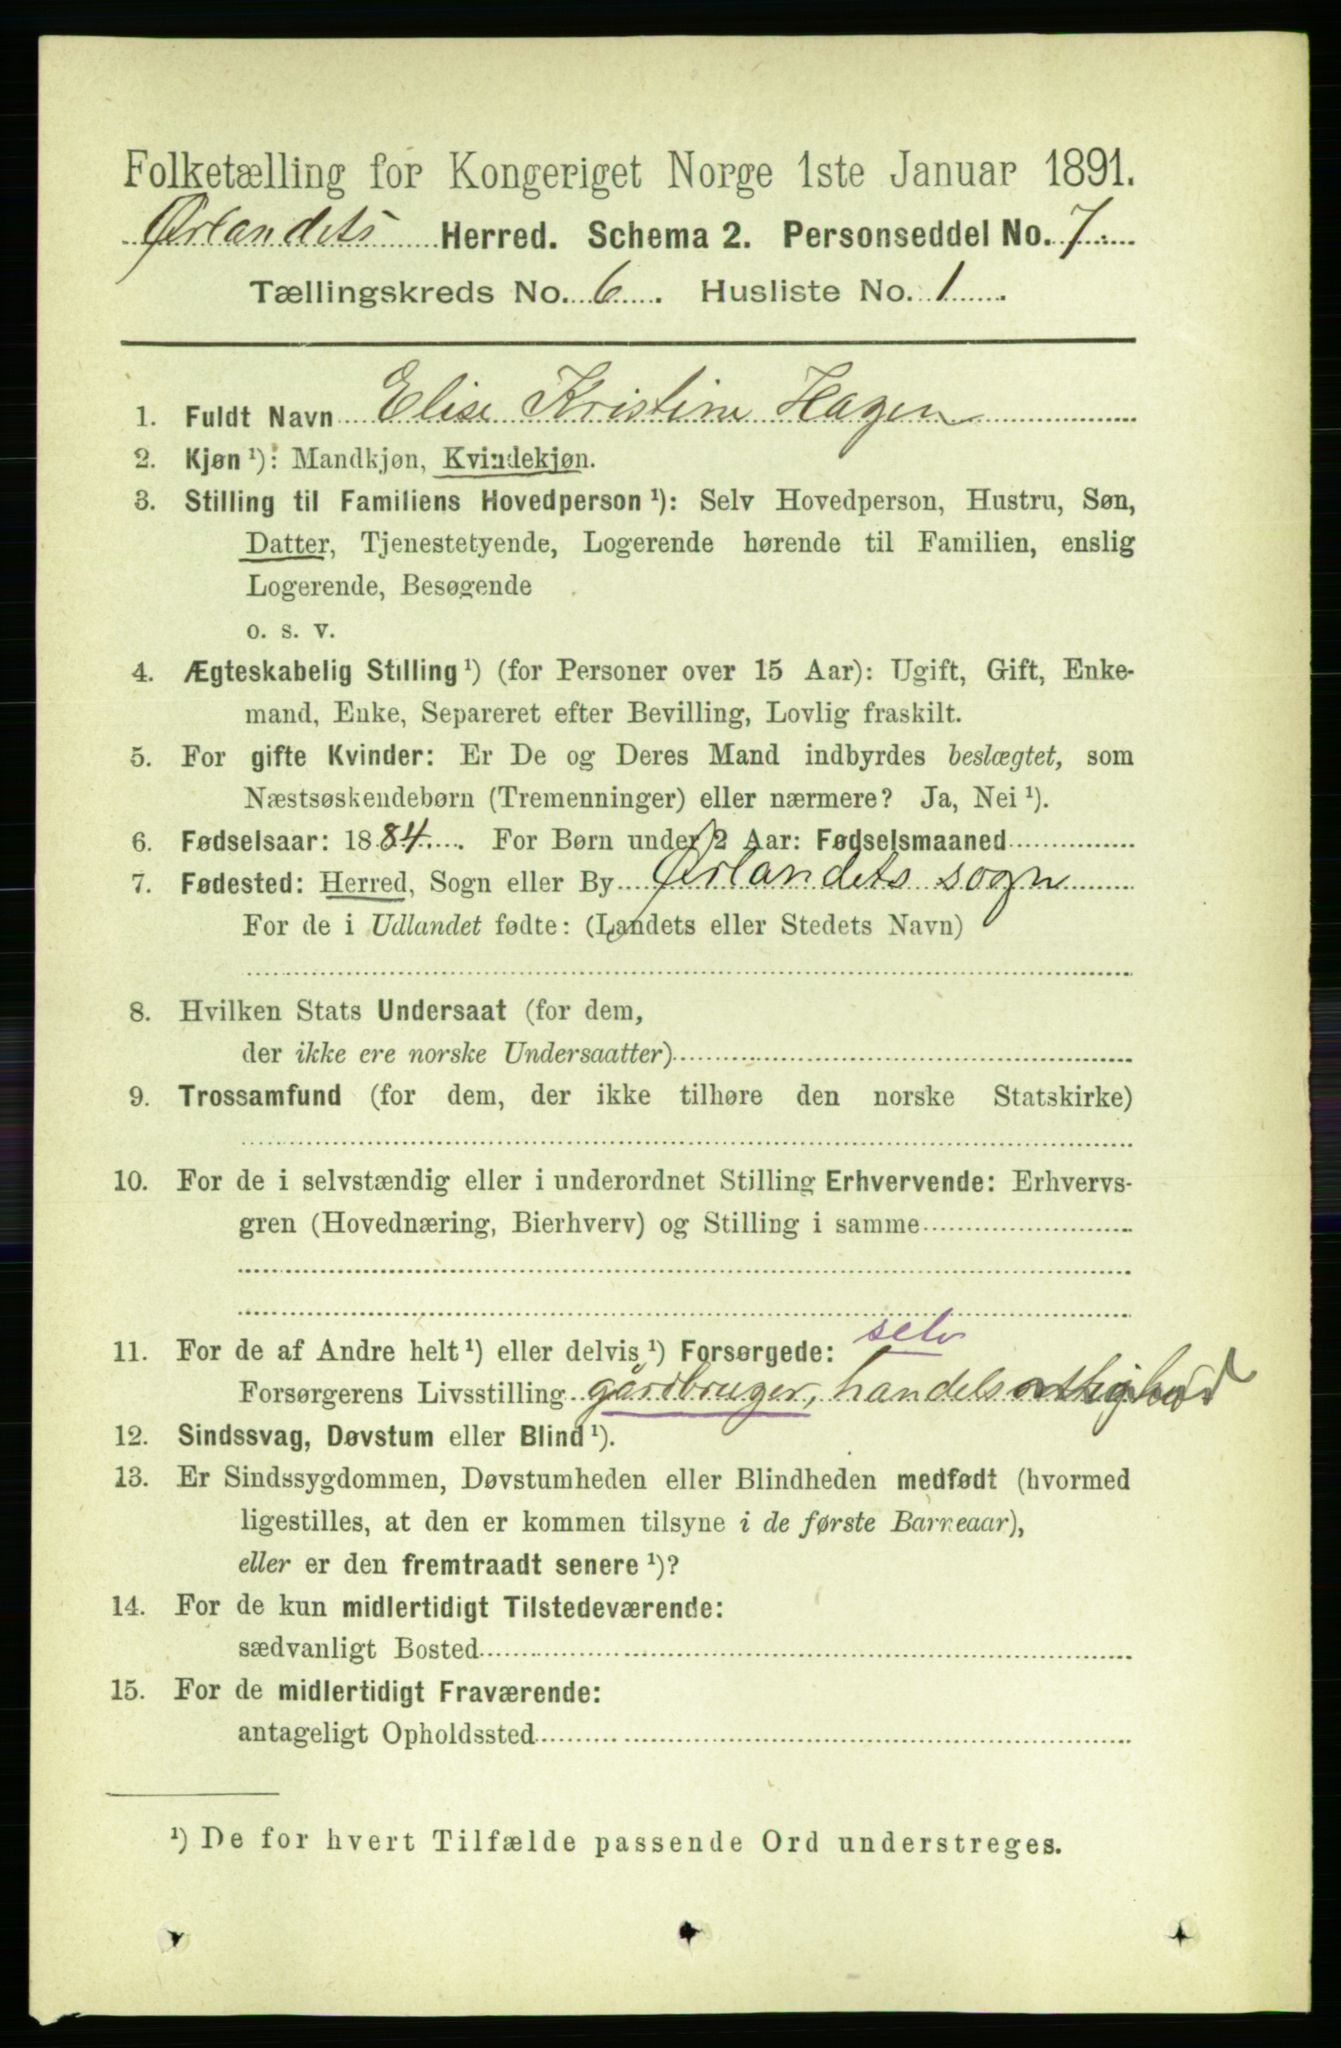 Folketælling for Kongeriget Norge 1ste Januar 1891.
Ørlandets Herred. Schema 2. Personseddel No. 7
Tællingskreds No. 6. Husliste No. 1
1. Fuldt Navn Elise Kristine Hagen
2. Kjøn ¹): Mandkjøn, Kvindekjøn.
3. Stilling til Familiens Hovedperson ¹): Selv Hovedperson, Hustru, Søn,
Datter, Tjenestetyende, Logerende hørende til Familien, enslig
Logerende, Besøgende
o. s. v.
4. Ægteskabelig Stilling ¹) (for Personer over 15 Aar): Ugift, Gift, Enke-
mand, Enke, Separeret efter Bevilling, Lovlig fraskilt.
5. For gifte Kvinder: Er De og Deres Mand indbyrdes beslægtet, som
Næstsøskendebørn (Tremenninger) eller nærmere? Ja, Nei ¹).
6. Fødselsaar: 1884. For Børn under 2 Aar: Fødselsmaaned
7. Fødested: Herred, Sogn eller By Ørlandets sogn
For de i Udlandet fødte: (Landets eller Stedets Navn)
8. Hvilken Stats Undersaat (for dem,
der ikke ere norske Undersaatter)
9. Trossamfund (for dem, der ikke tilhøre den norske Statskirke)
10. For de i selvstændig eller i underordnet Stilling Erhvervende: Erhvervs-
gren (Hovednæring, Bierhverv) og Stilling i samme
selv
11. For de af Andre helt ¹) eller delvis ¹) Forsørgede:
Forsørgerens Livsstilling gårdbruger, handels
12. Sindssvag, Døvstum eller Blind ¹).
13. Er Sindssygdommen, Døvstumheden eller Blindheden medfødt (hvormed
ligestilles, at den er kommen tilsyne i de første Barneaar),
eller er den fremtraadt senere ¹)?
14. For de kun midlertidigt Tilstedeværende:
sædvanligt Bosted
15. For de midlertidigt Fraværende:
antageligt Opholdssted
¹) De for hvert Tilfælde passende Ord understreges.